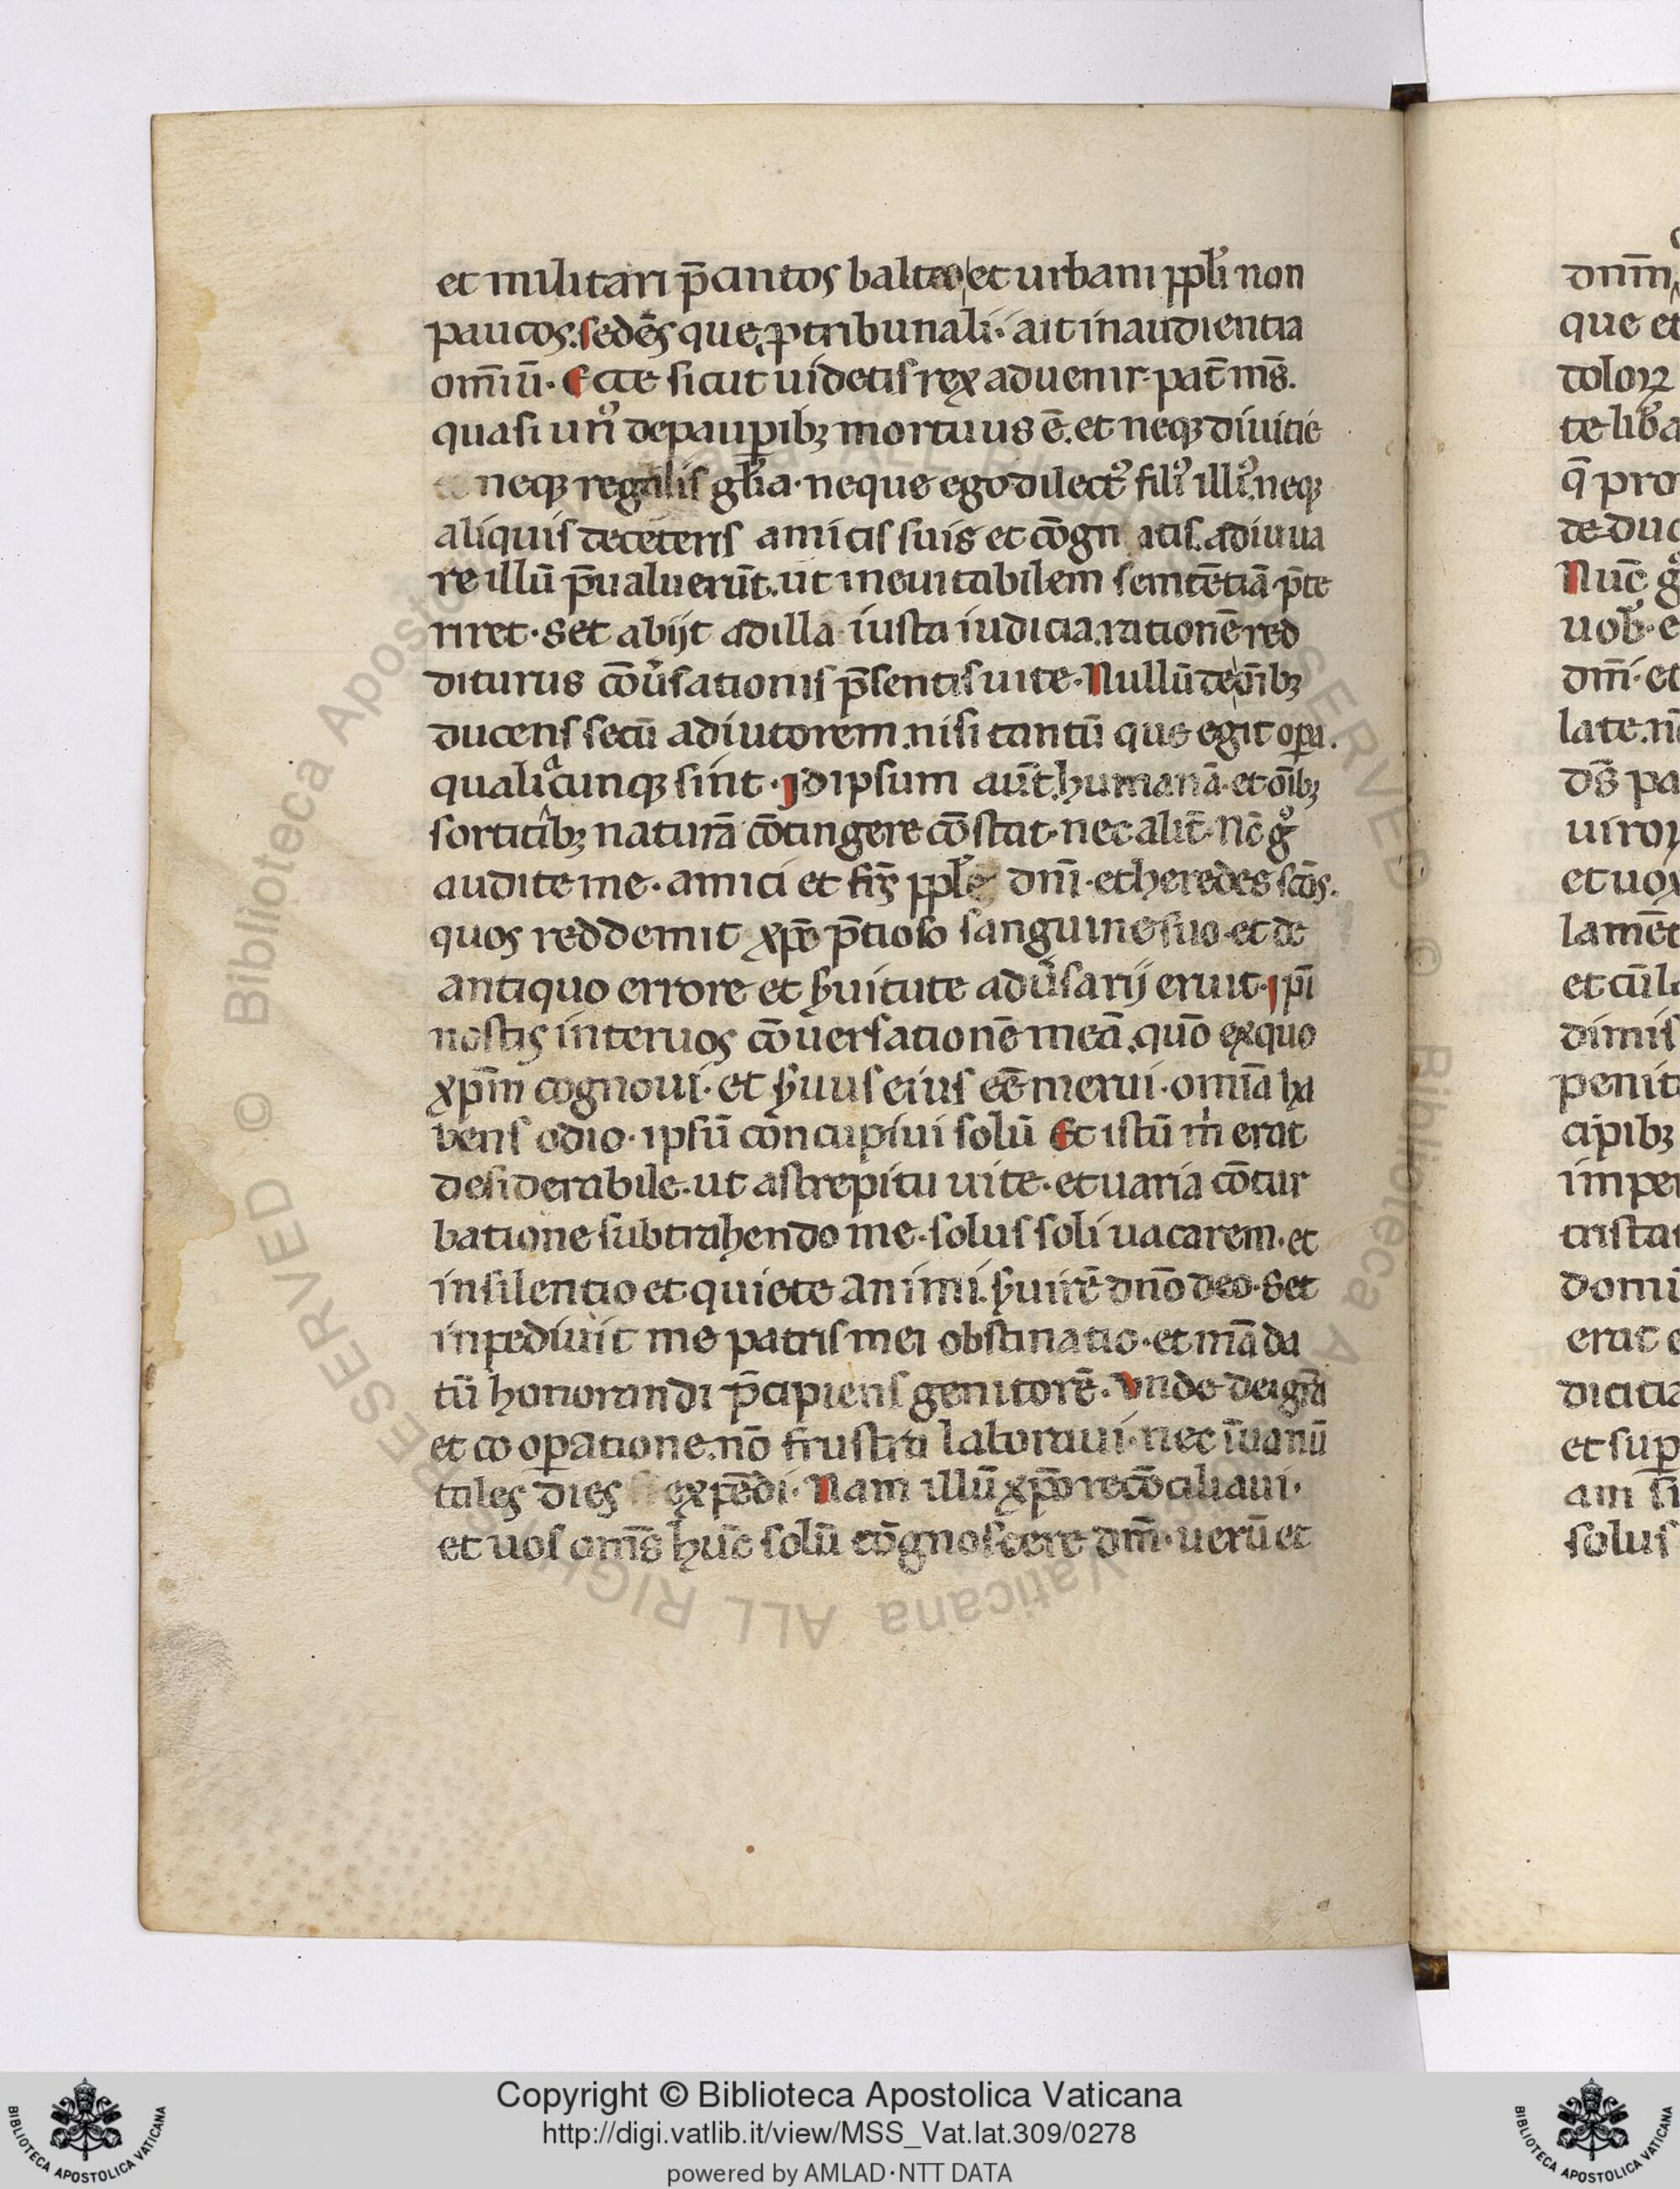 et militari p̄cintos balteo et urbani ppl̓i non
paucos. sedēs que p tribunali. ait in audientia
om̄iū. Ecce sicut uidetis rex aduenit. pat̄ ms̄.
quasi un᷒ de paupib; mortuus ē. et neq; diuitie
neq; regalis gl̓ia. neque ego dilect᷒ fili᷒ illi᷒. neq;
aliquis de ceteris amicis suis et cōgn atis. adiuua
re illū p̄ualuerūt. ut ineuitabilem semtētiā p̄te
riret. Set abijt ad illa iusta iudicia. rationē red
diturus cōu̓sationis p̄sentis uite. Nullū de oīb;
ducens secū adiutorem. nisi tantū que egit opa.
qualiacunq; sint. Idipsum aūt humanā. et oīb;
sortitib; naturā cōtingere cōstat. nec alit̄. Nc̄ gͦ
audite me. amici et frs̄ ppl̓e dn̄i. et heredes scōs.
quos reddemit xp̄c p̄tioso sanguine suo. et de
antiquo errore et s̓uitute adu̓sarij eruit. Ip̄i
nostis inter uos cōuersationē meā. quō ex quo
xp̄m cognoui. et s̓uus eius eē merui. omīa ha
bens odio. ipsū concupiui solū Et istū m̓ erat
desiderabile. ut a strepitu uite. et uaria cōtur
batione subtrahendo me. solus soli uacarem. et
in silentio et quiete animi. s̓uirē dn̄o deo. Set
inpediuit me patris mei obstinatio. et māda
tū honorandi p̄cipiens genitorē. Unde dei gr̄a
et co opatione. nō frustra laboraui. nec ī uanū
tales dies expēdi. Nam illū xp̄o recōciliaui.
et uos oms̄ huc̄ solū cōgnoscere dm̄. uerū et
dnm̄
que et
te lib̓a
q̄ pro
de duc
Nuc̄ gͦ
dm̄i. et
ds̄ pa
et uox
lamēt
penit
cipib;
erat e
et sup
solus
© Biblioteca Apostolica Vaticana ALL RIGHTS RESERVED
Copyright © Biblioteca Apostolica Vaticana
http://digi.vatlib.it/view/MSS_Vat.lat.309/0278
powered by AMLAD·NTT DATA
BIBLIOTECA APOSTOLICA VATICANA
BIBLIOTECA APOSTOLICA VATICANA